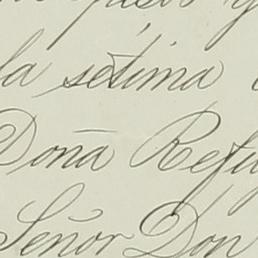 la sétima
Doña Refu
Señor Don